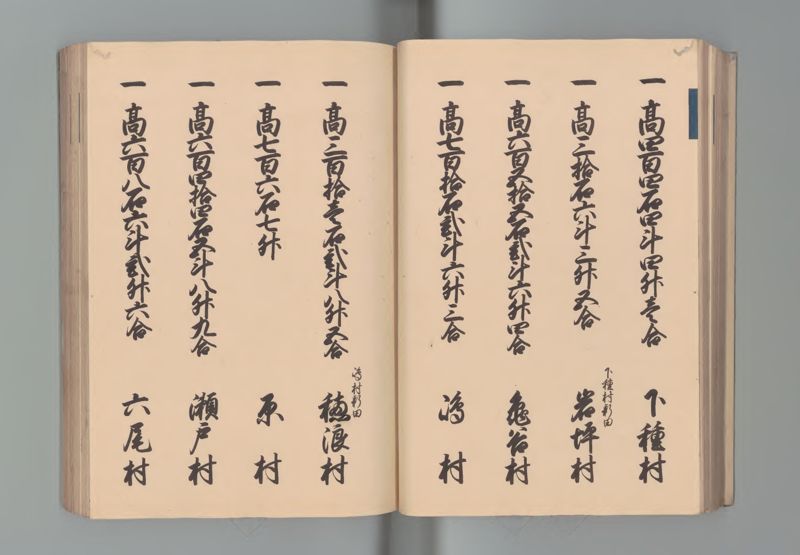 一 高四百四石四斗四升壱合 下種村
一 高三拾石六斗三升五合 下種村新田 岩坪村
一 高六百五拾五石弐斗六升四合 亀谷村
一 高七百拾石弐斗六升三合 嶋村
一 高三百拾壱石弐斗八升五合 嶋村新田 穂浪村
一 高七百六石七升 原村
一 高六百四拾四石五斗八升九合 瀬戸村
一 高六百八石六斗弐升六合 六尾村